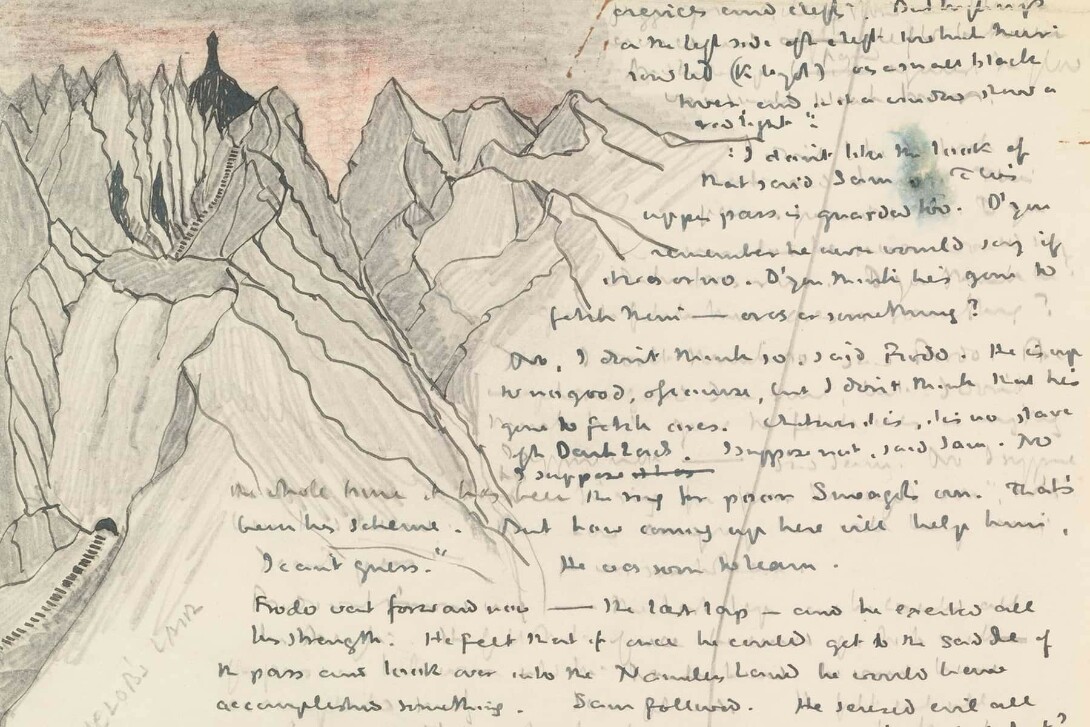 crevices and clefts. But high up
on the left side of the cleft
(Kirith Ungol) as a small black
tower, and in it a window show a
red light."
: I don't like the look of
that said Sam. This
upper pass is guarded too. D'you
remember he never would say if
it was or no. D'you think he's gone to
fetch them — orcs or something?
No, I don't think so, said Frodo. He is up
to no good, of course, but I don't think that he's
gone to fetch orcs. Whatever it is, it is no slave
of the Dark Lord's. I suppose not, said Sam. No
I suppose it has
the whole time it has been the ring for poor Smeagol's own. That's
been his scheme. But how coming up here will help him,
I can't guess." He was soon to learn.
Frodo went forward now — the last lap — and he exerted all
his strength. He felt that if once he could get to the saddle of
the pass and look over into the Nameless Land he would have
accomplished something. Sam followed. He sensed evil all
SHELOB'S LAIR